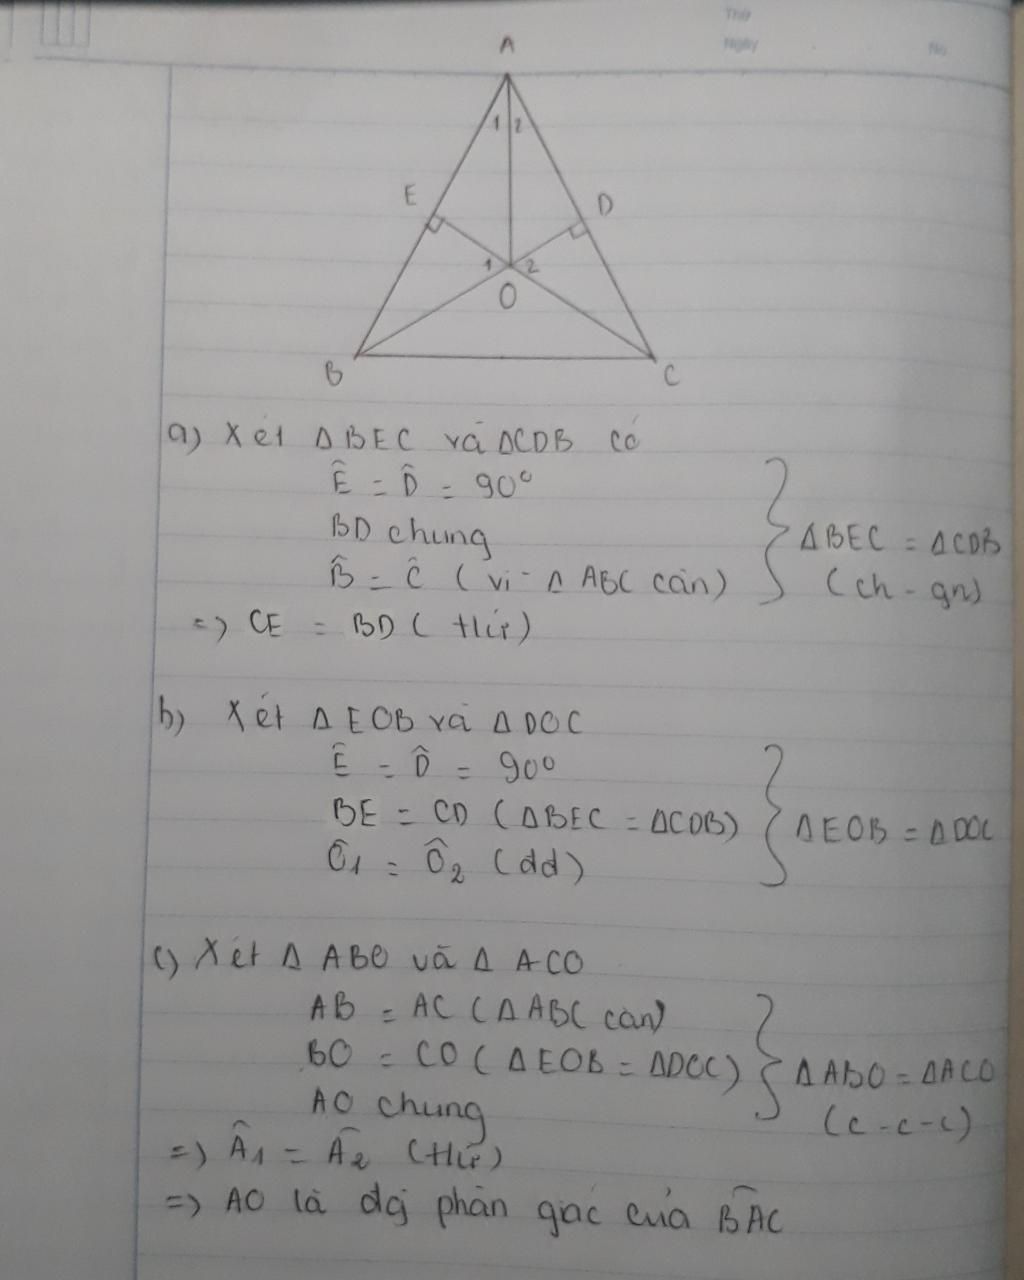 Thứ
Ngày
No
A
1 2
E
D
1 2
O
B
C
a) Xét ΔBEC và ΔCDB có
Ê = D̂ = 90°
BD chung
B̂ = Ĉ (vì Δ ABC cân)
ΔBEC = ΔCDB
(ch - gn)
=> CE = BD (
b) Xét Δ EOB và Δ DOC
Ê = D̂ = 90°
BE = CD (ΔBEC = ΔCDB)
Ô1 = Ô2 (dd)
ΔEOB = ΔDOC
c) Xét Δ ABO và Δ ACO
AB = AC (ΔABC cân)
BO = CO (ΔEOB = ΔDOC)
AO chung
ΔABO = ΔACO
(c - c - c)
=> Â1 = Â2 (
=> AO là đg phân giác của B͡AC